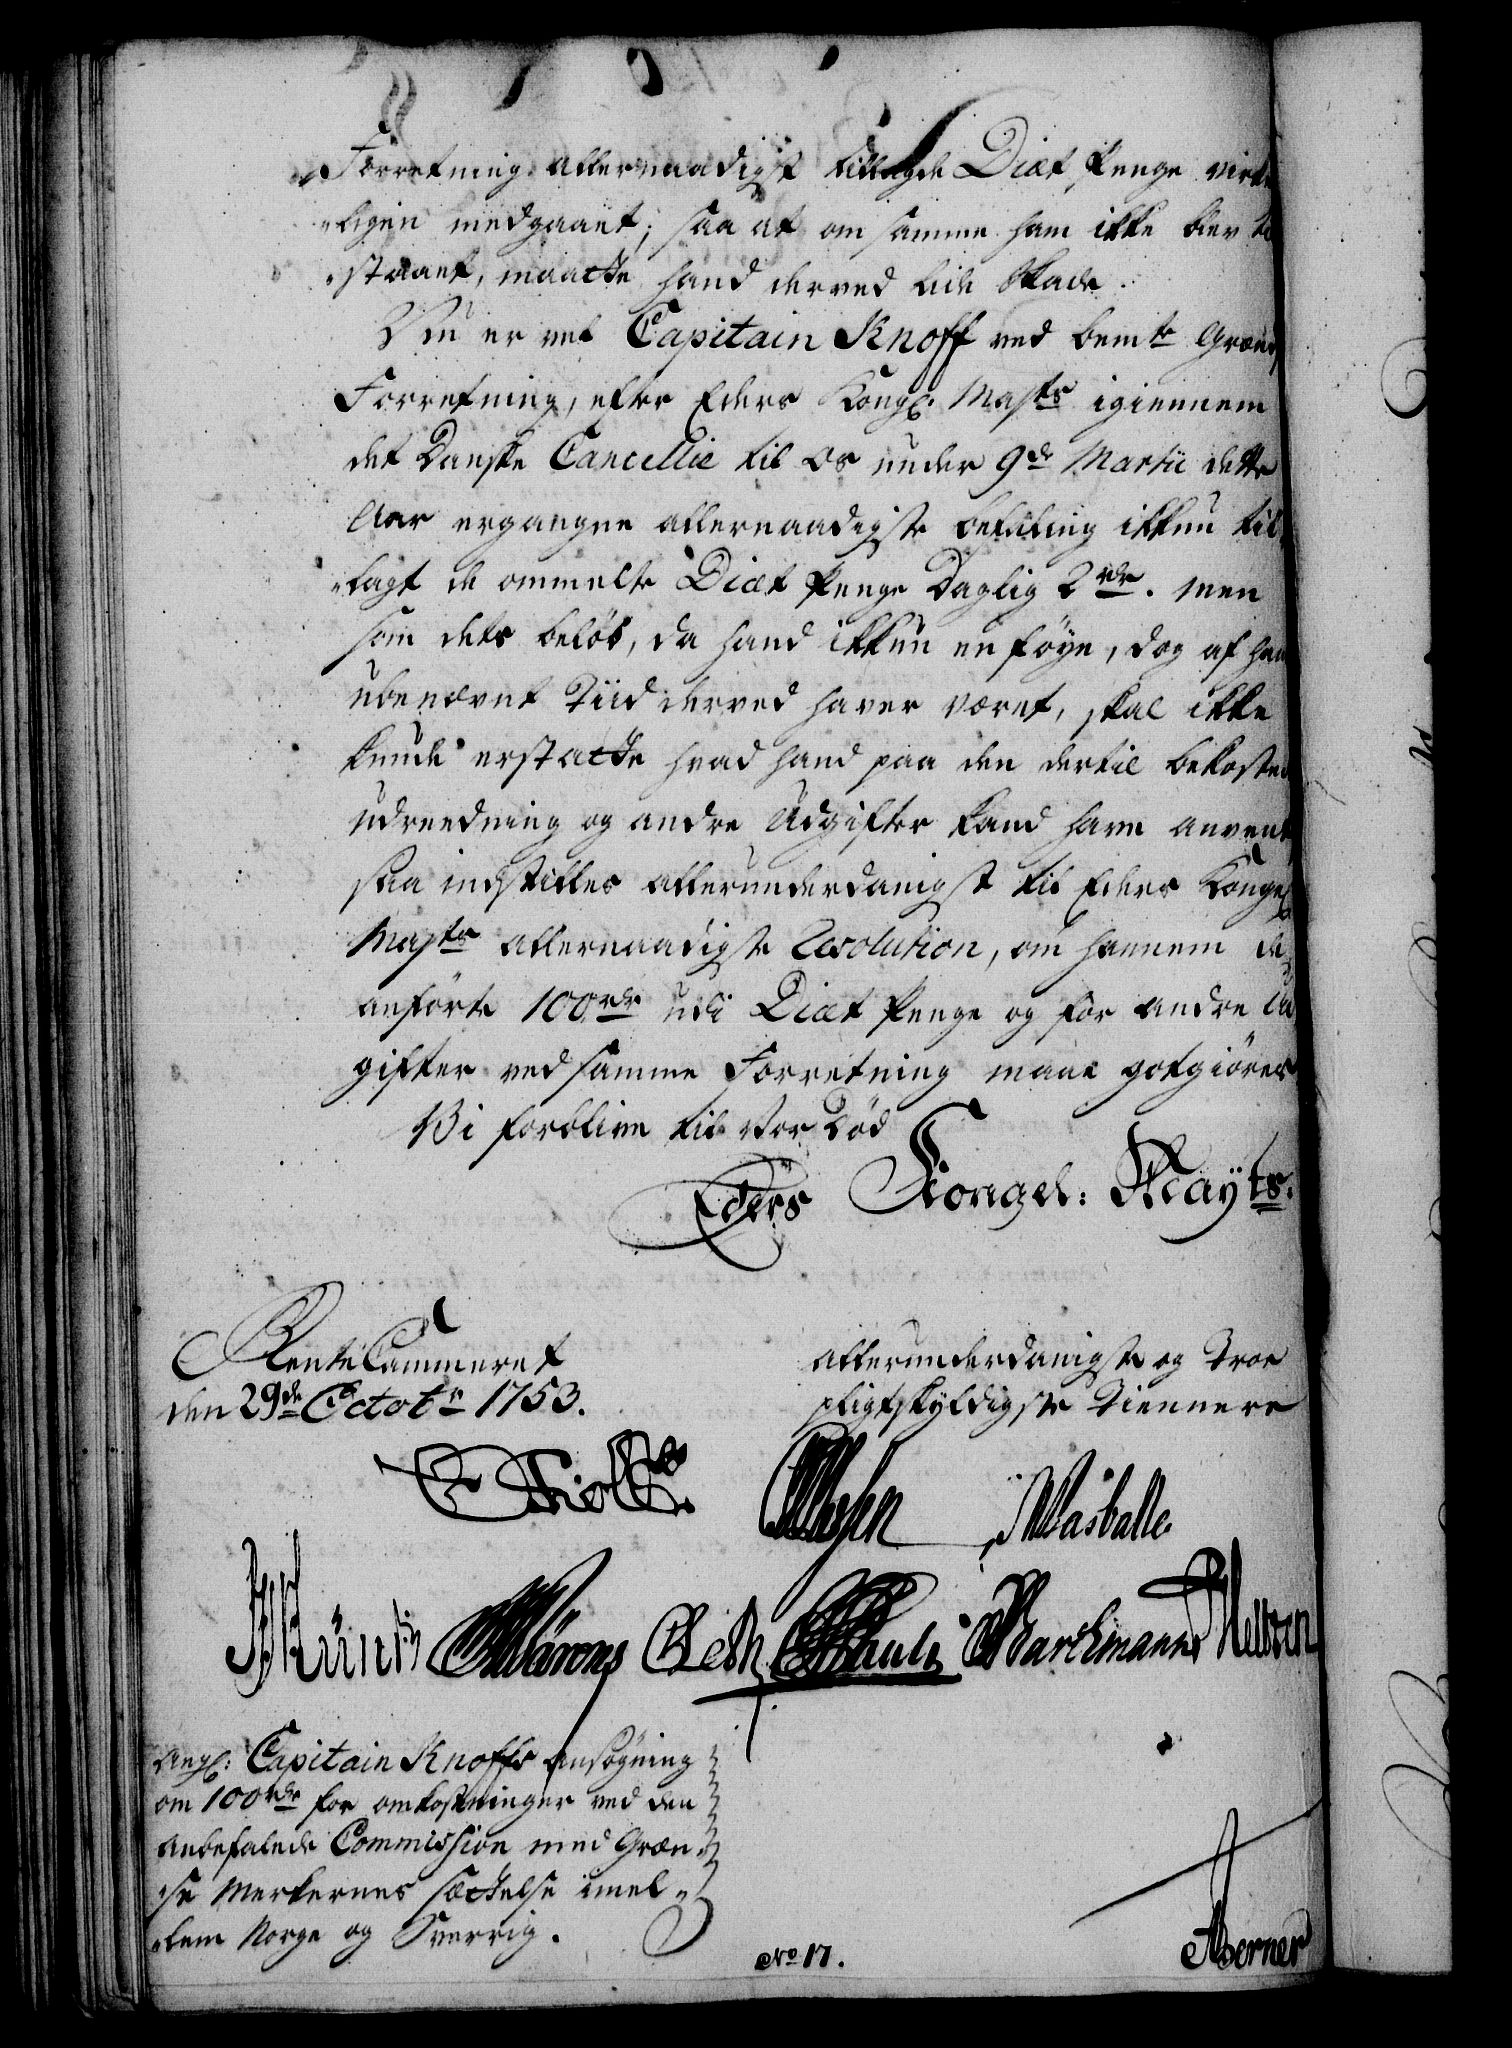 Forretning allernaadigst tillagde Diæt Penge virke
„ligen medgaaet; saa at om samme ham ikke blev til
„staaet, maatte hand derved lide Skade.
Nu er vel Capitain Knoff ved bemte Grændse
Forretning, efter Eders Kongl. Maits igiennem
det Danske Cancellie til os under 9de Martii dette
Aar ergangne allernaadigste befaling ikkun til
„lagt de ommelte Diæt Penge Daglig 2 rdr. men
som dets beløb, da hand ikkun en føye, dog af ham
ubenævnt Tiid derved haver været, skal ikke
kunde erstatte hvad hand paa den dertil bekostede
udreedning og andre Udgifter kand have anvendt,
saa indstilles allerunderdanigst til Eders Kongel
Maits allernaadigste Resolution, om hannem de
anførte 100 rdr udi Diæt Penge og for andre Ud
gifter ved samme Forretning maae gotgiøres
Vi forblive til vor Død
Eders Kongel: Mayts.
Rente Cammeret
den 29de Octobr 1753.
allerunderdanigste og Troe
pligtskyldigste Tiennere
Holst
Wasballe
Pauli Barchmann
Angl: Capitain Knoffs ansøgning
om 100 rdr for omkostninger ved den
anbefalede Commission med Græn„
„se Merkernes sættelse imel„
„lem Norge og Sverrig.
No 17.
Berner